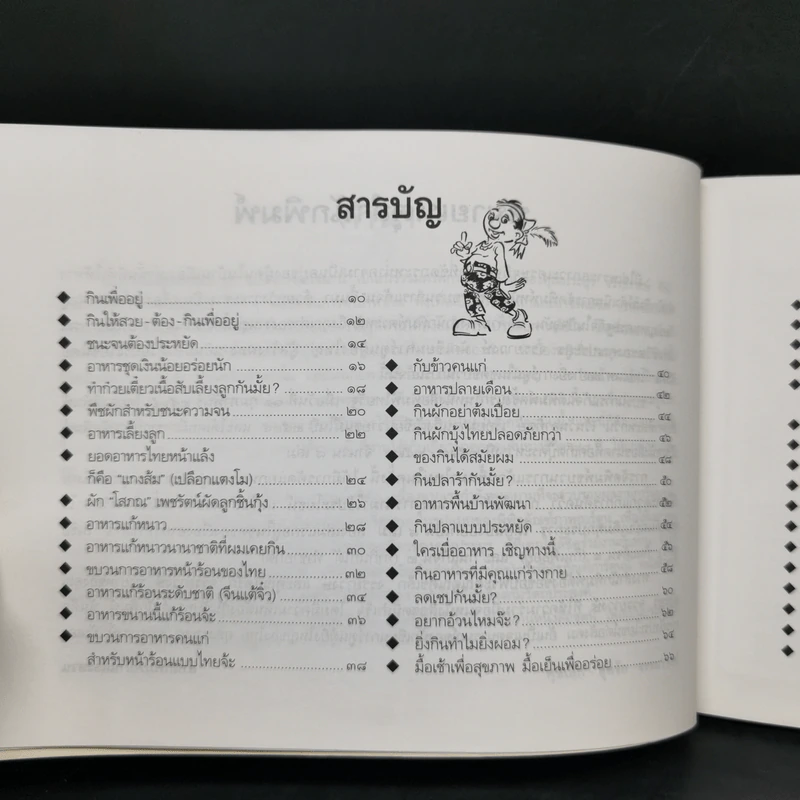 สารบัญ
กินเพื่ออยู่ ๑๐
กินให้สวย - ต้อง - กินเพื่ออยู่ ๑๒
ชนะจนต้องประหยัด ๑๔
อาหารชุดเงินน้อยอร่อยนัก ๑๖
ทำก๋วยเตี๋ยวเนื้อสับเลี้ยงลูกกันมั้ย? ๑๘
พืชผักสำหรับชนะความจน ๒๐
อาหารเลี้ยงลูก ๒๒
ยอดอาหารไทยหน้าแล้ง
ก็คือ "แกงส้ม" (เปลือกแตงโม) ๒๔
ผัก "โสภณ" เพชรัตน์ผัดลูกชิ้นกุ้ง ๒๖
อาหารแก้หนาว ๒๘
อาหารแก้หนาวนานาชาติที่ผมเคยกิน ๓๐
ขบวนการอาหารหน้าร้อนของไทย ๓๒
อาหารแก้ร้อนระดับชาติ (จีนแต้จิ๋ว) ๓๔
อาหารขนานนี้แก้ร้อนจ้ะ ๓๖
ขบวนการอาหารคนแก่
สำหรับหน้าร้อนแบบไทยจ้ะ ๓๘
กับข้าวคนแก่ ๔๐
อาหารปลายเดือน ๔๒
กินผักอย่าต้มเปื่อย ๔๔
กินผักบุ้งไทยปลอดภัยกว่า ๔๖
ของกินได้สมัยผม ๔๘
กินปลาร้ากันมั้ย? ๕๐
อาหารพื้นบ้านพัฒนา ๕๒
กินปลาแบบประหยัด ๕๔
ใครเบื่ออาหาร เชิญทางนี้ ๕๖
กินอาหารที่มีคุณแก่ร่างกาย ๕๘
ลดเซปกันมั้ย? ๖๐
อยากอ้วนไหมจ๊ะ? ๖๒
ยิ่งกินทำไมยิ่งผอม? ๖๔
มื้อเช้าเพื่อสุขภาพ มื้อเย็นเพื่ออร่อย ๖๖